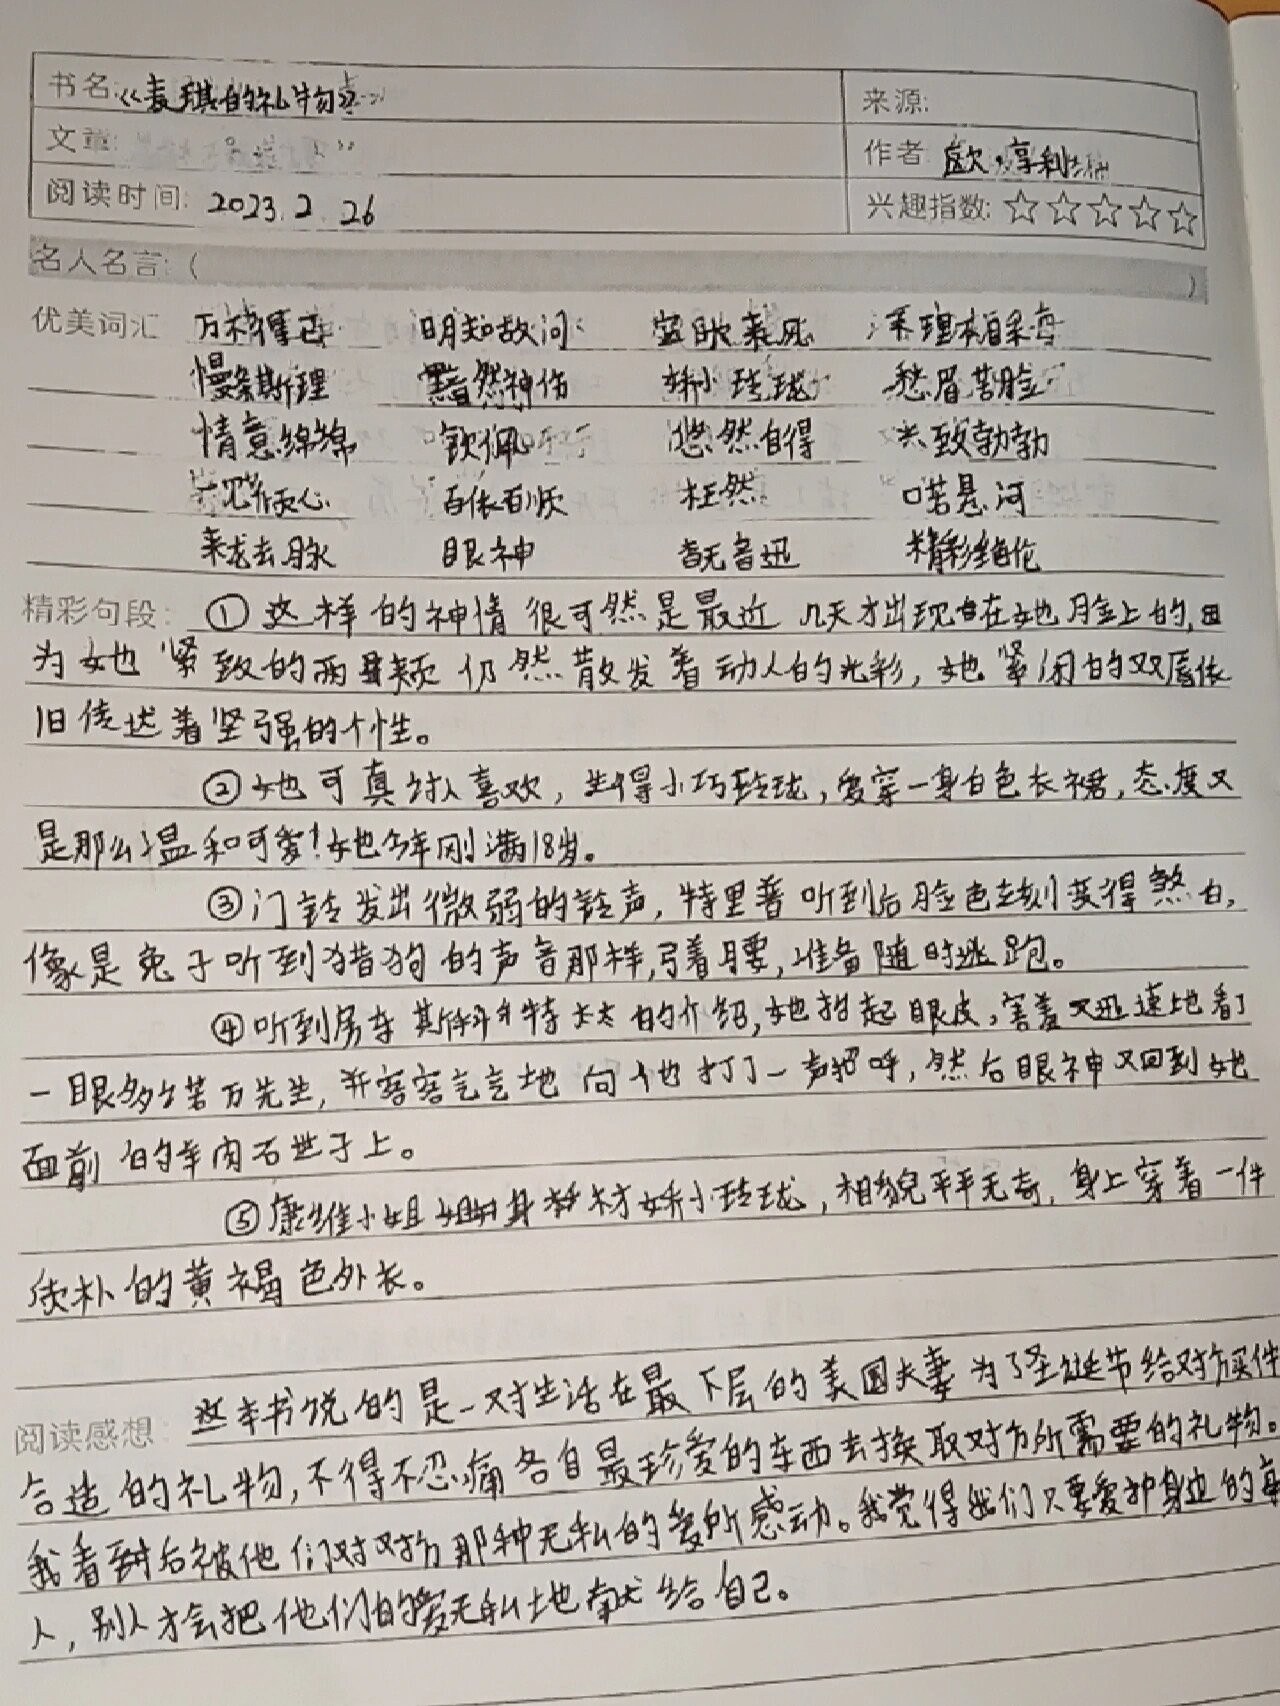 书名:《麦琪的礼物》 来源:
文章: 作者 欧·享利
阅读时间: 2023.2.26 兴趣指数: ☆☆☆☆☆
名人名言: ( )
优美词汇 明知故问
慢条斯理 黯然神伤 娇小玲珑 愁眉苦脸
情意绵绵 钦佩 悠然自得 兴致勃勃
百依百顺 枉然
来龙去脉 眼神 杳无音迅 精彩绝伦
精彩句段: ①这样的神情很可然是最近几天才出现在她脸上的,因
为她紧致的两颊仍然散发着动人的光彩,她紧闭的双唇依
旧传达着坚强的个性。
②她可真讨人喜欢,生得小巧玲珑,爱穿一身白色长裙,态度又
是那么温和可爱!她今年刚满18岁。
③门铃发出微弱的铃声,特里普听到后脸色立刻变得煞白,
像是兔子听到猎狗的声音那样,弓着腰,准备随时逃跑。
④听到房东斯科特太太的介绍,她抬起眼皮,害羞又迅速地看了
一眼多诺万先生,并客客气气地向他打了一声招呼,然后眼神又回到她
面前的羊肉
⑤康维小姐身材娇小玲珑,相貌平平无奇,身上穿着一件
朴的黄褐色外长。
这本书说的是一对生活在最下层的美国夫妻为了圣诞节给对方买件
阅读感想:
合造的礼物,不得不忍痛各自最珍爱的东西去换取对方所需要的礼物。
我看到后被他们对对方那种无私的爱所感动。我觉得我们只要爱护身边的每
人,别人才会把他们的爱无私地献给自己。